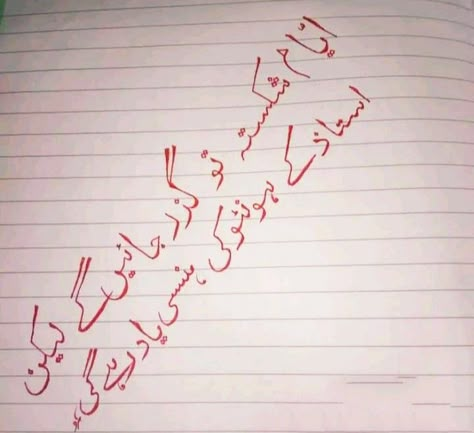 ایام شکستہ تو گزر جائیں گے لیکن
استاذ کے ہونٹوکی ہنسی یاد رہے گی